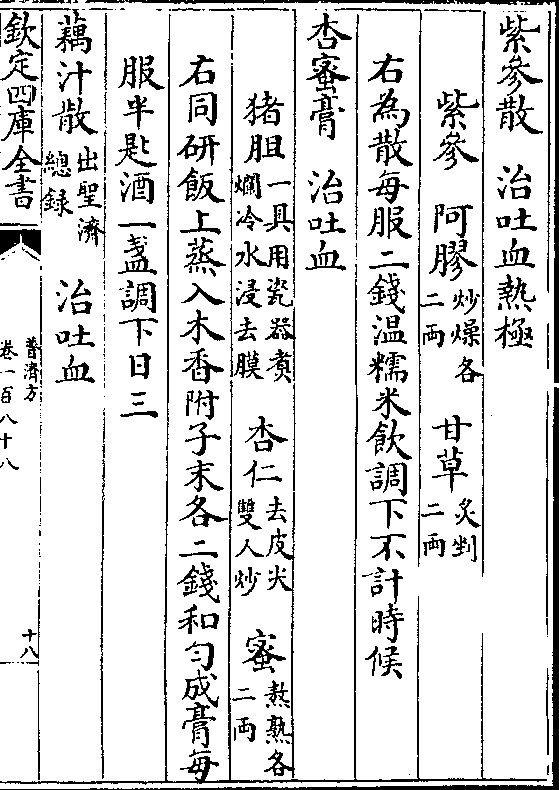 紫參散　治吐血熱極
紫參　阿膠炒燥各二両　甘草炙剉二両
右為散每服二錢温糯米飲調下不計時候
杏蜜膏　治吐血
猪胆一具用瓷器煑爛冷水浸去膜　杏仁去皮尖雙人炒　蜜熬熟各二両
右同研飯上蒸入木香附子末各二錢和匀成膏每
服半匙酒一盞調下日三
藕汁散出聖濟總録　治吐血
欽定四庫全書
普濟方
卷一百八十八
十八